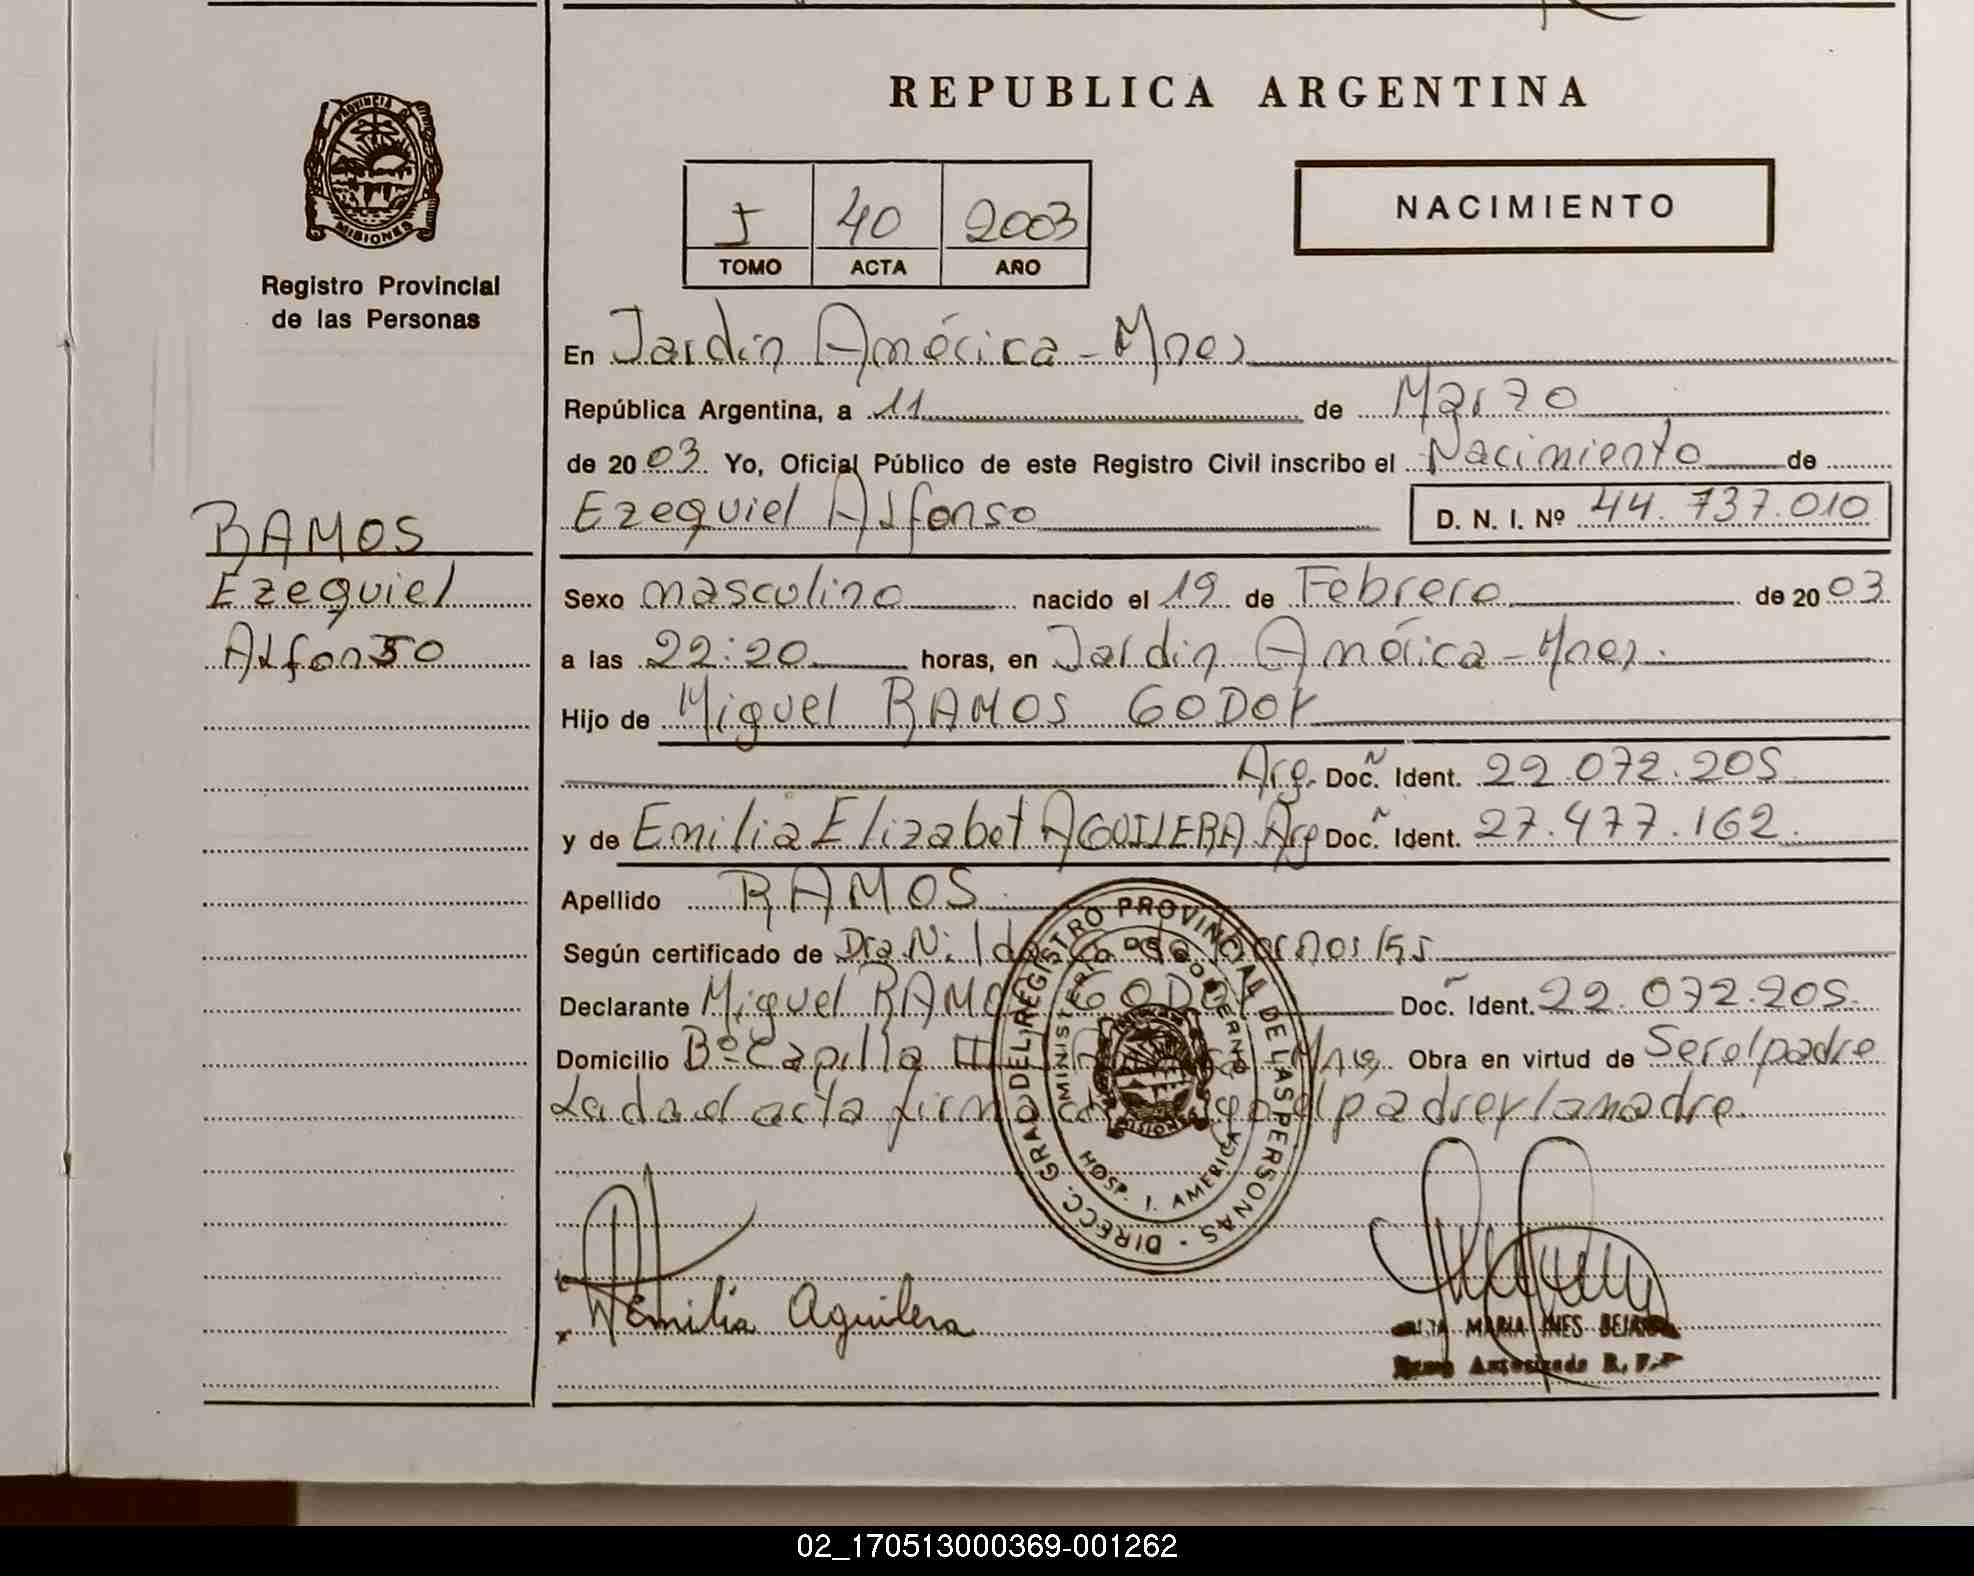 REPUBLICA ARGENTINA
PROVINCIA DE
MISIONES
Registro Provincial
de las Personas
NACIMIENTO
I 40 2003
TOMO ACTA AÑO
En Jardín América - Mnes
República Argentina, a 11 de Marzo
de 2003 Yo, Oficial Público de este Registro Civil inscribo el Nacimiento de
Ezequiel Alfonso D. N. I. Nº 44.737.010
RAMOS
Ezequiel
Alfonso
Sexo masculino nacido el 19 de Febrero de 2003
a las 22:20 horas, en Jardín América - Mnes.
Hijo de Miguel RAMOS GODOY
Arg. Doc. Ident. 22.072.205
y de Emilia Elizabet AGUILERA Arg Doc. Ident. 27.477.162.
Apellido RAMOS
Según certificado de Dra Nilda
Declarante Miguel RAMOS GODOY Doc. Ident. 22.072.205.
Domicilio Bº Capilla Mnes. Obra en virtud de Ser el padre
Leída el acta firma el padre y la madre.
DIRECC. GRAL DEL REGISTRO PROVINCIAL DE LAS PERSONAS
MINISTERIO DE GOBIERNO
MISIONES
HOSP. I. AMERICA
Emilia Aguilera
MARIA INES
Autorizada R. P.
02_170513000369-001262